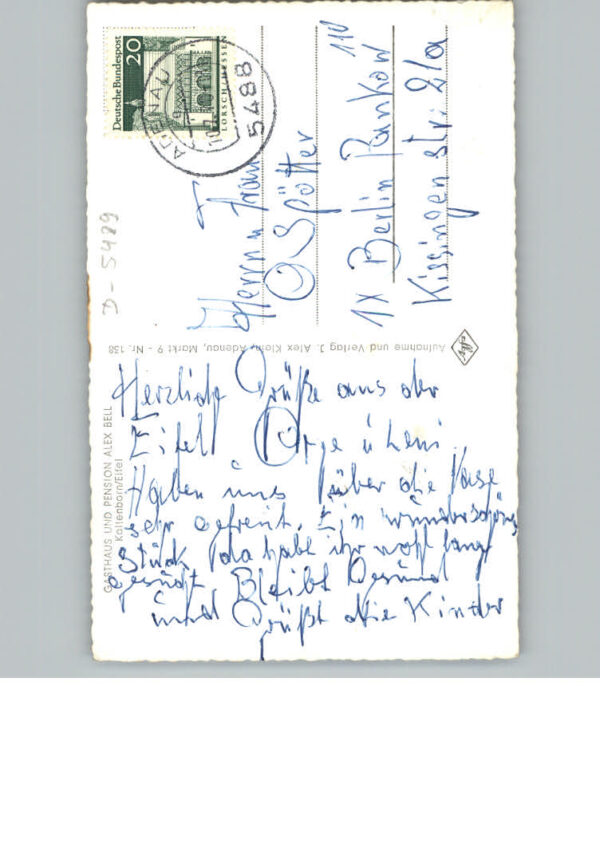 Deutsche Bundespost
20
LORSCH/HESSEN
ADENAU
5488
D-5489
Herrn u Frau
O Spötter
110
1X Berlin Pankow
Kissingen str. 21a
Aufnahme und Verlag J. Alex Klein, Adenau, Markt 9 - Nr. 158
GASTHAUS UND PENSION ALEX BELL
Kaltenborn/Eifel
Herzliche Grüße aus der
Eifel
Haben uns über die Vase
sehr gefreut. Ein wunderschönes
Stück, da habt ihr wohl lange
gesucht Bleibt Gesund
und Grüßt die Kinder